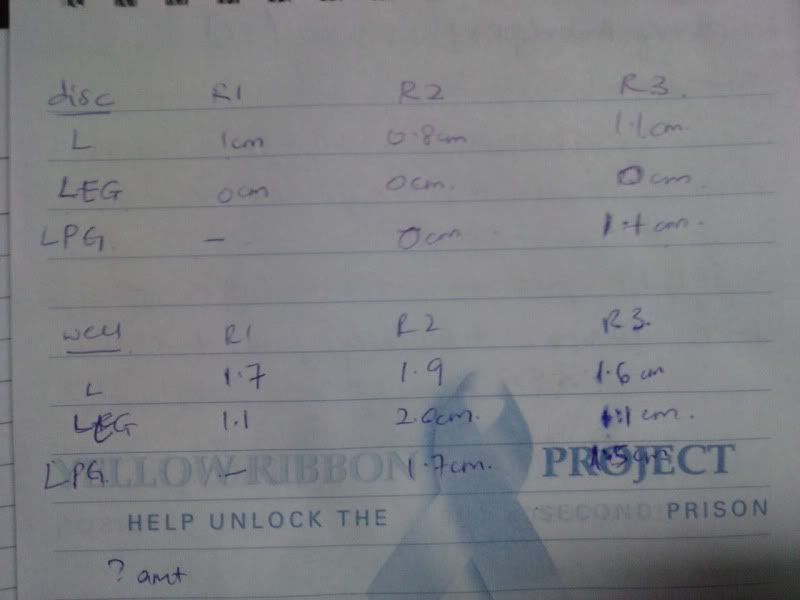 disc R1 R2 R3.
L 1cm 0.8cm 1.1cm.
LEG 0cm 0cm. 0cm.
LPG. – 0cm. cm.
well R1 R2 R3.
L 1.7 1.9 1.6 cm
LEG 1.1 2.0cm. 1.1 cm.
LPG. – 1.7cm.
YELLOW RIBBON PROJECT
HELP UNLOCK THE SECOND PRISON
? amt